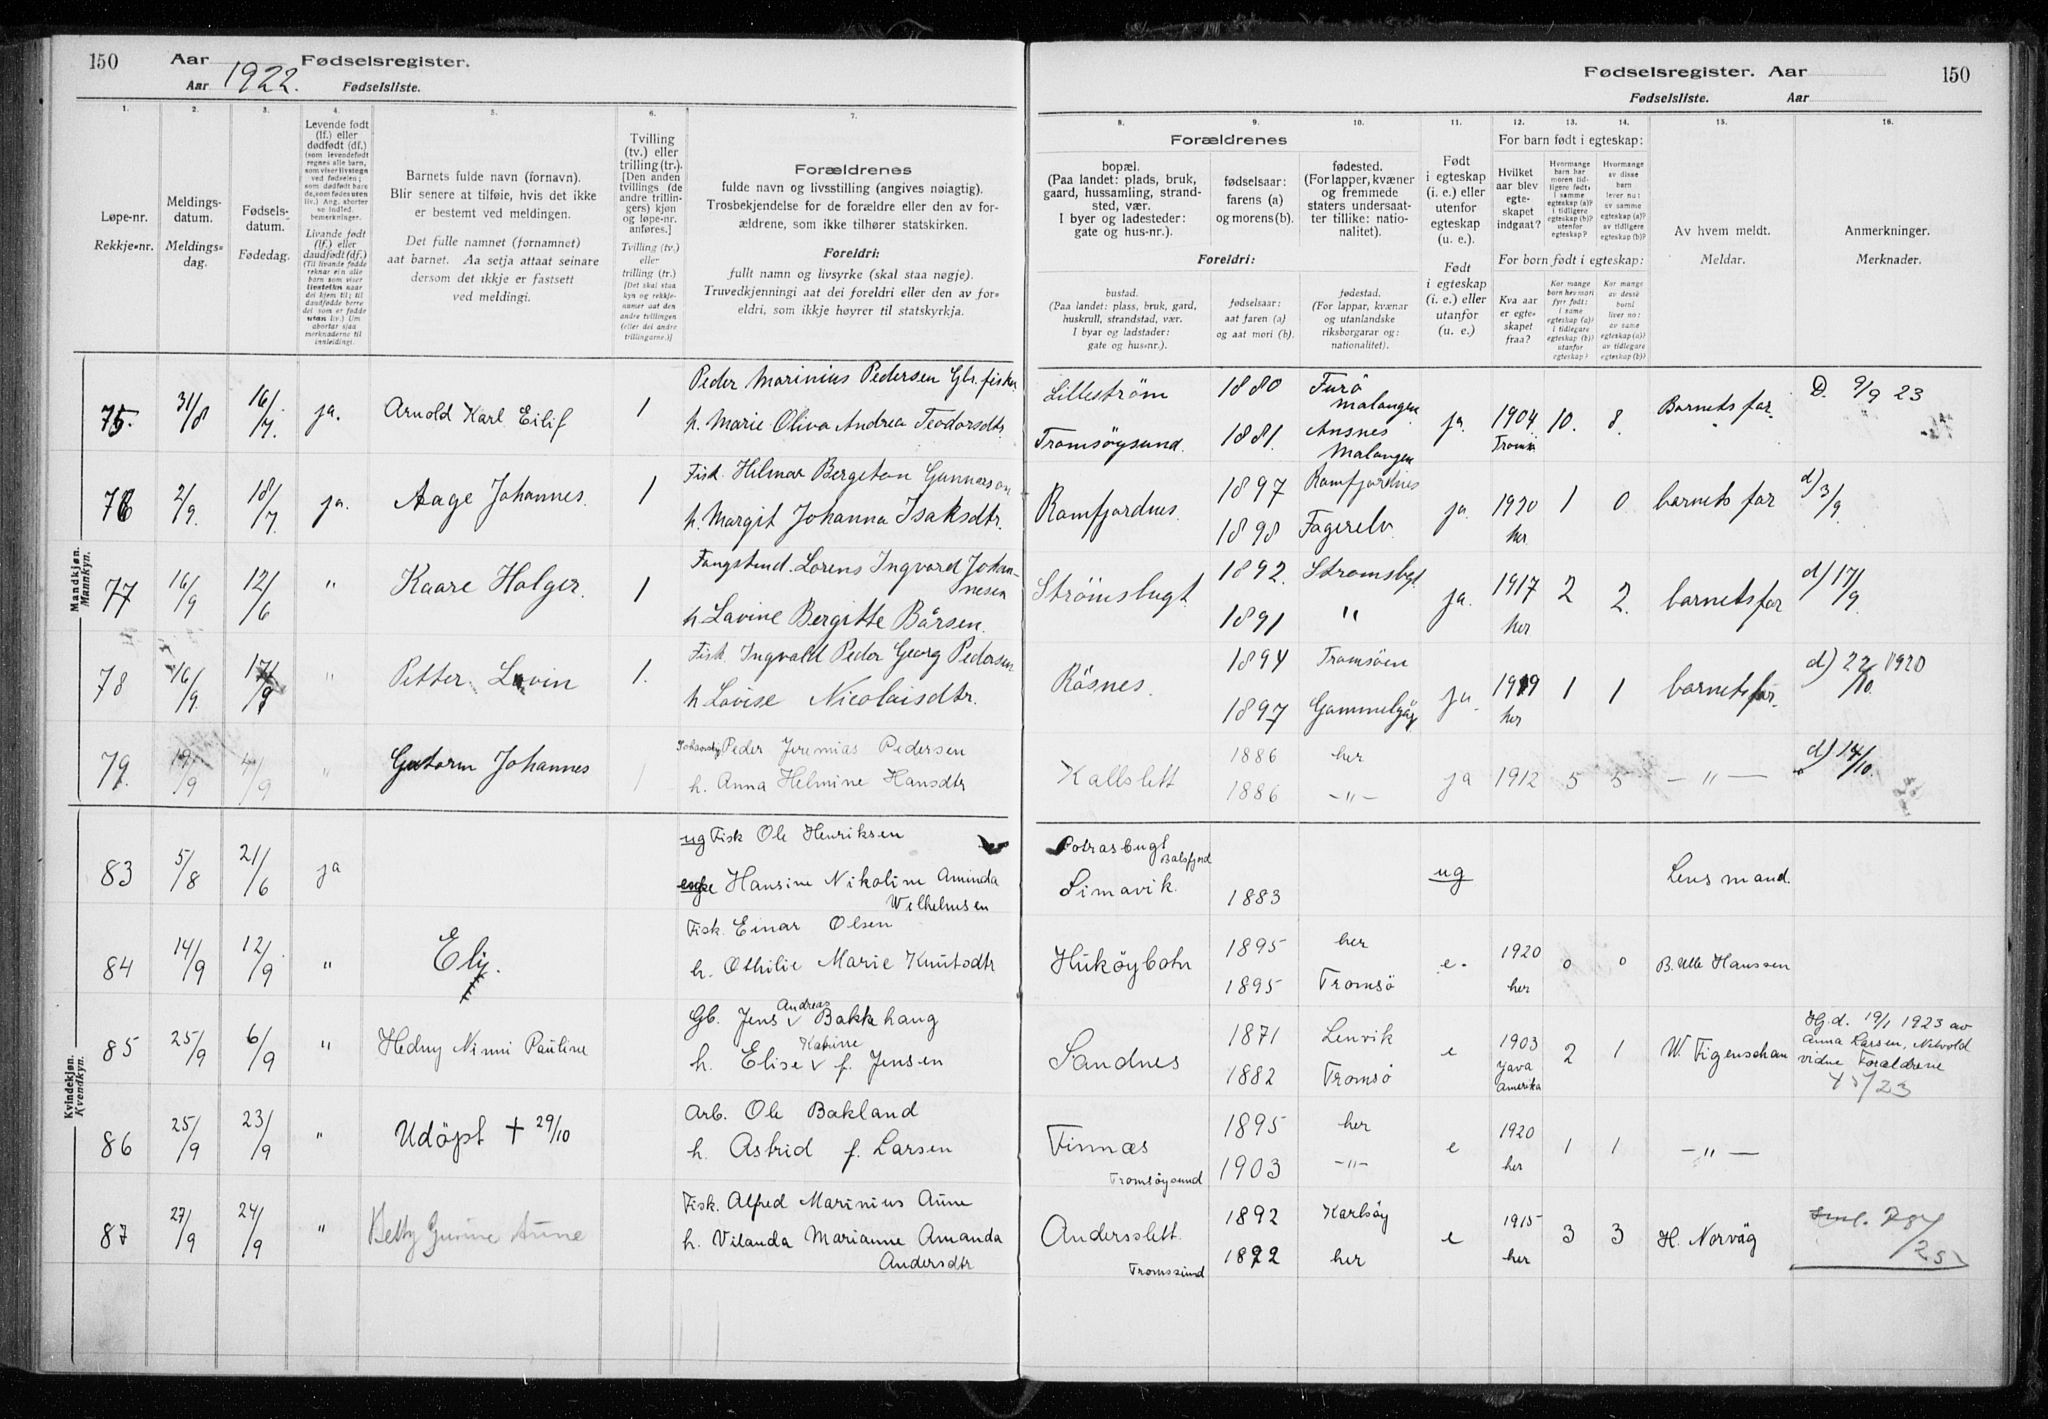 150 Aar Fødselsregister.
Aar 1922. Fødselsliste.
Fødselsregister. Aar 150
Fødselsliste. Aar
1. 2. 3. 4. 5. 6. 7.
8. 9. 10. 11. 12. 13. 14. 15. 16.
Løpe-nr.
Rekkje-nr.
Meldings-
datum.
Meldings-
dag.
Fødsels-
datum.
Fødedag.
Levende født
(lf.) eller
dødfødt (df.)
Livande født
(lf.) eller
daudfødt (df.)
Barnets fulde navn (fornavn).
Blir senere at tilføie, hvis det ikke
er bestemt ved meldingen.
Det fulle namnet (fornamnet)
aat barnet. Aa setja attaat seinare
dersom det ikkje er fastsett
ved meldingi.
Tvilling
(tv.) eller
trilling (tr.).
[Den anden
tvillings (de
andre trillin-
gers) kjøn
og løpe-nr.
anføres.]
Tvilling (tv.)
eller
trilling (tr.)
Forældrenes
fulde navn og livsstilling (angives nøiagtig).
Trosbekjendelse for de forældre eller den av for-
ældrene, som ikke tilhører statskirken.
Foreldri:
fullt namn og livsyrke (skal staa nøgje).
Truvedkjenningi aat dei foreldri eller den av for-
eldri, som ikkje høyrer til statskyrkja.
Forældrenes
bopæl.
(Paa landet: plads, bruk,
gaard, hussamling, strand-
sted, vær.
I byer og ladesteder:
gate og hus-nr.).
fødselsaar:
farens (a)
og morens (b).
fødested.
(For lapper, kvæner
og fremmede
staters undersaat-
ter tillike: natio-
nalitet).
Foreldri:
bustad.
(Paa landet: plass, bruk, gard,
huskrull, strandstad, vær.
I byar og ladstader:
gate og hus-nr.).
fødselsaar:
aat faren (a)
og aat mori (b).
fødestad.
(For lappar, kvænar
og utanlandske
riksborgarar og:
nationalitet).
Født
i egteskap
(i. e.) eller
utenfor
egteskap
(u. e.).
Født
i egteskap
(i. e.) eller
utanfor
egteskap
(u. e.).
For barn født i egteskap:
Hvilket
aar blev
egte-
skapet
indgaat?
For born født i egteskap:
Kva aar
er egte-
skapet
fraa?
Av hvem meldt.
Meldar.
Anmerkninger.
Merknader.
Mandkjøn.
Mannkyn.
75. 31/8 16/7. ja. Arnold Karl Eilif 1 Peder Marinius Pedersen Gbr. fisker
h. Marie Oliva Andrea Teodorsdtr.
Lillestrøm 1880 Furö Malangen ja. 1904 Tromsö 10. 8. Barnets far. D. 9/9 23
Tromsøysund. 1881. Ansnes Malangen
76 2/9. 18/7. ja. Aage Johannes. 1 Fisk. Hilmar Bergeton Gunnarson
h. Margit Johanna Isaksdtr.
Ramfjordnes. 1897 Ramfjordnes ja. 1920 her 1 0 barnets far d/3/9.
1898 Fagerelv.
77 16/9 12/6 " Kaare Holger. 1 Fangstmd. Lorens Ingvard Johan-
nesen
h Lavine Bergitte Bårsen.
Strömsbugt 1892. Stromsbgt ja. 1917 her 2 2. barnets far d) 17/9.
1891 "
78 16/9. 17/8 " Petter Lovin 1. Fisk. Ingvald Peder Georg Pedersen
h Lovise Nicolaisdtr.
Råsnes. 1894 Tromsøen ja. 1919 her 1 1 barnets far. d) 22/10. 1920
1897 Gammelgåg
79. 19/9 4/9 " Guttorm Johannes 1 Peder Jeremias Pedersen
h. Anna Helmine Hansdtr
Kallslett 1886 her ja 1912 5 5 — " — d) 14/10.
1886 — " —
Kvindekjøn.
Kvendkyn.
83 5/8 21/6 ja ug Fisk Ole Henriksen
enke Hansine Nikoline Aminda
Wilhelmsen
Balsfjord
Simavik. 1883 ug Lensmand.
84 14/9 12/9 " Ely. Fisk. Einar Olsen
h. Othilie Marie Knutsdtr
Hukøybotn 1895 her e. 1920 her 0 0 B. Ulle Hanssen
1895 Tromsø
85 25/9 6/9 " Hedny Ninni Pauline Gb. Jens Andreas Bakkhaug
h. Elise Katrine f. Jensen
Sandnes 1871 Lenvik e 1903 Java Amerika 2 1 W. Figenschau Hj.d. 19/1 1923 av
Anna Larsen, Netvold
vidne Forældrene
1882 Tromsø
86 25/9 23/9 " Udöpt + 29/10 Arb. Ole Bakland
h. Astrid f. Larsen
Finnæs 1895 her e 1920 her 1 1 — " —
Tromsøysund 1903 — " —
87 27/9 24/9 " Betty Gunine Aune Fisk. Alfred Marinius Aune
h. Vilanda Marianne Amanda
Andersdtr
Andersslett. 1892 Karlsöy e 1915 her 3 3 H. Norväg
Tromssund 1892 her